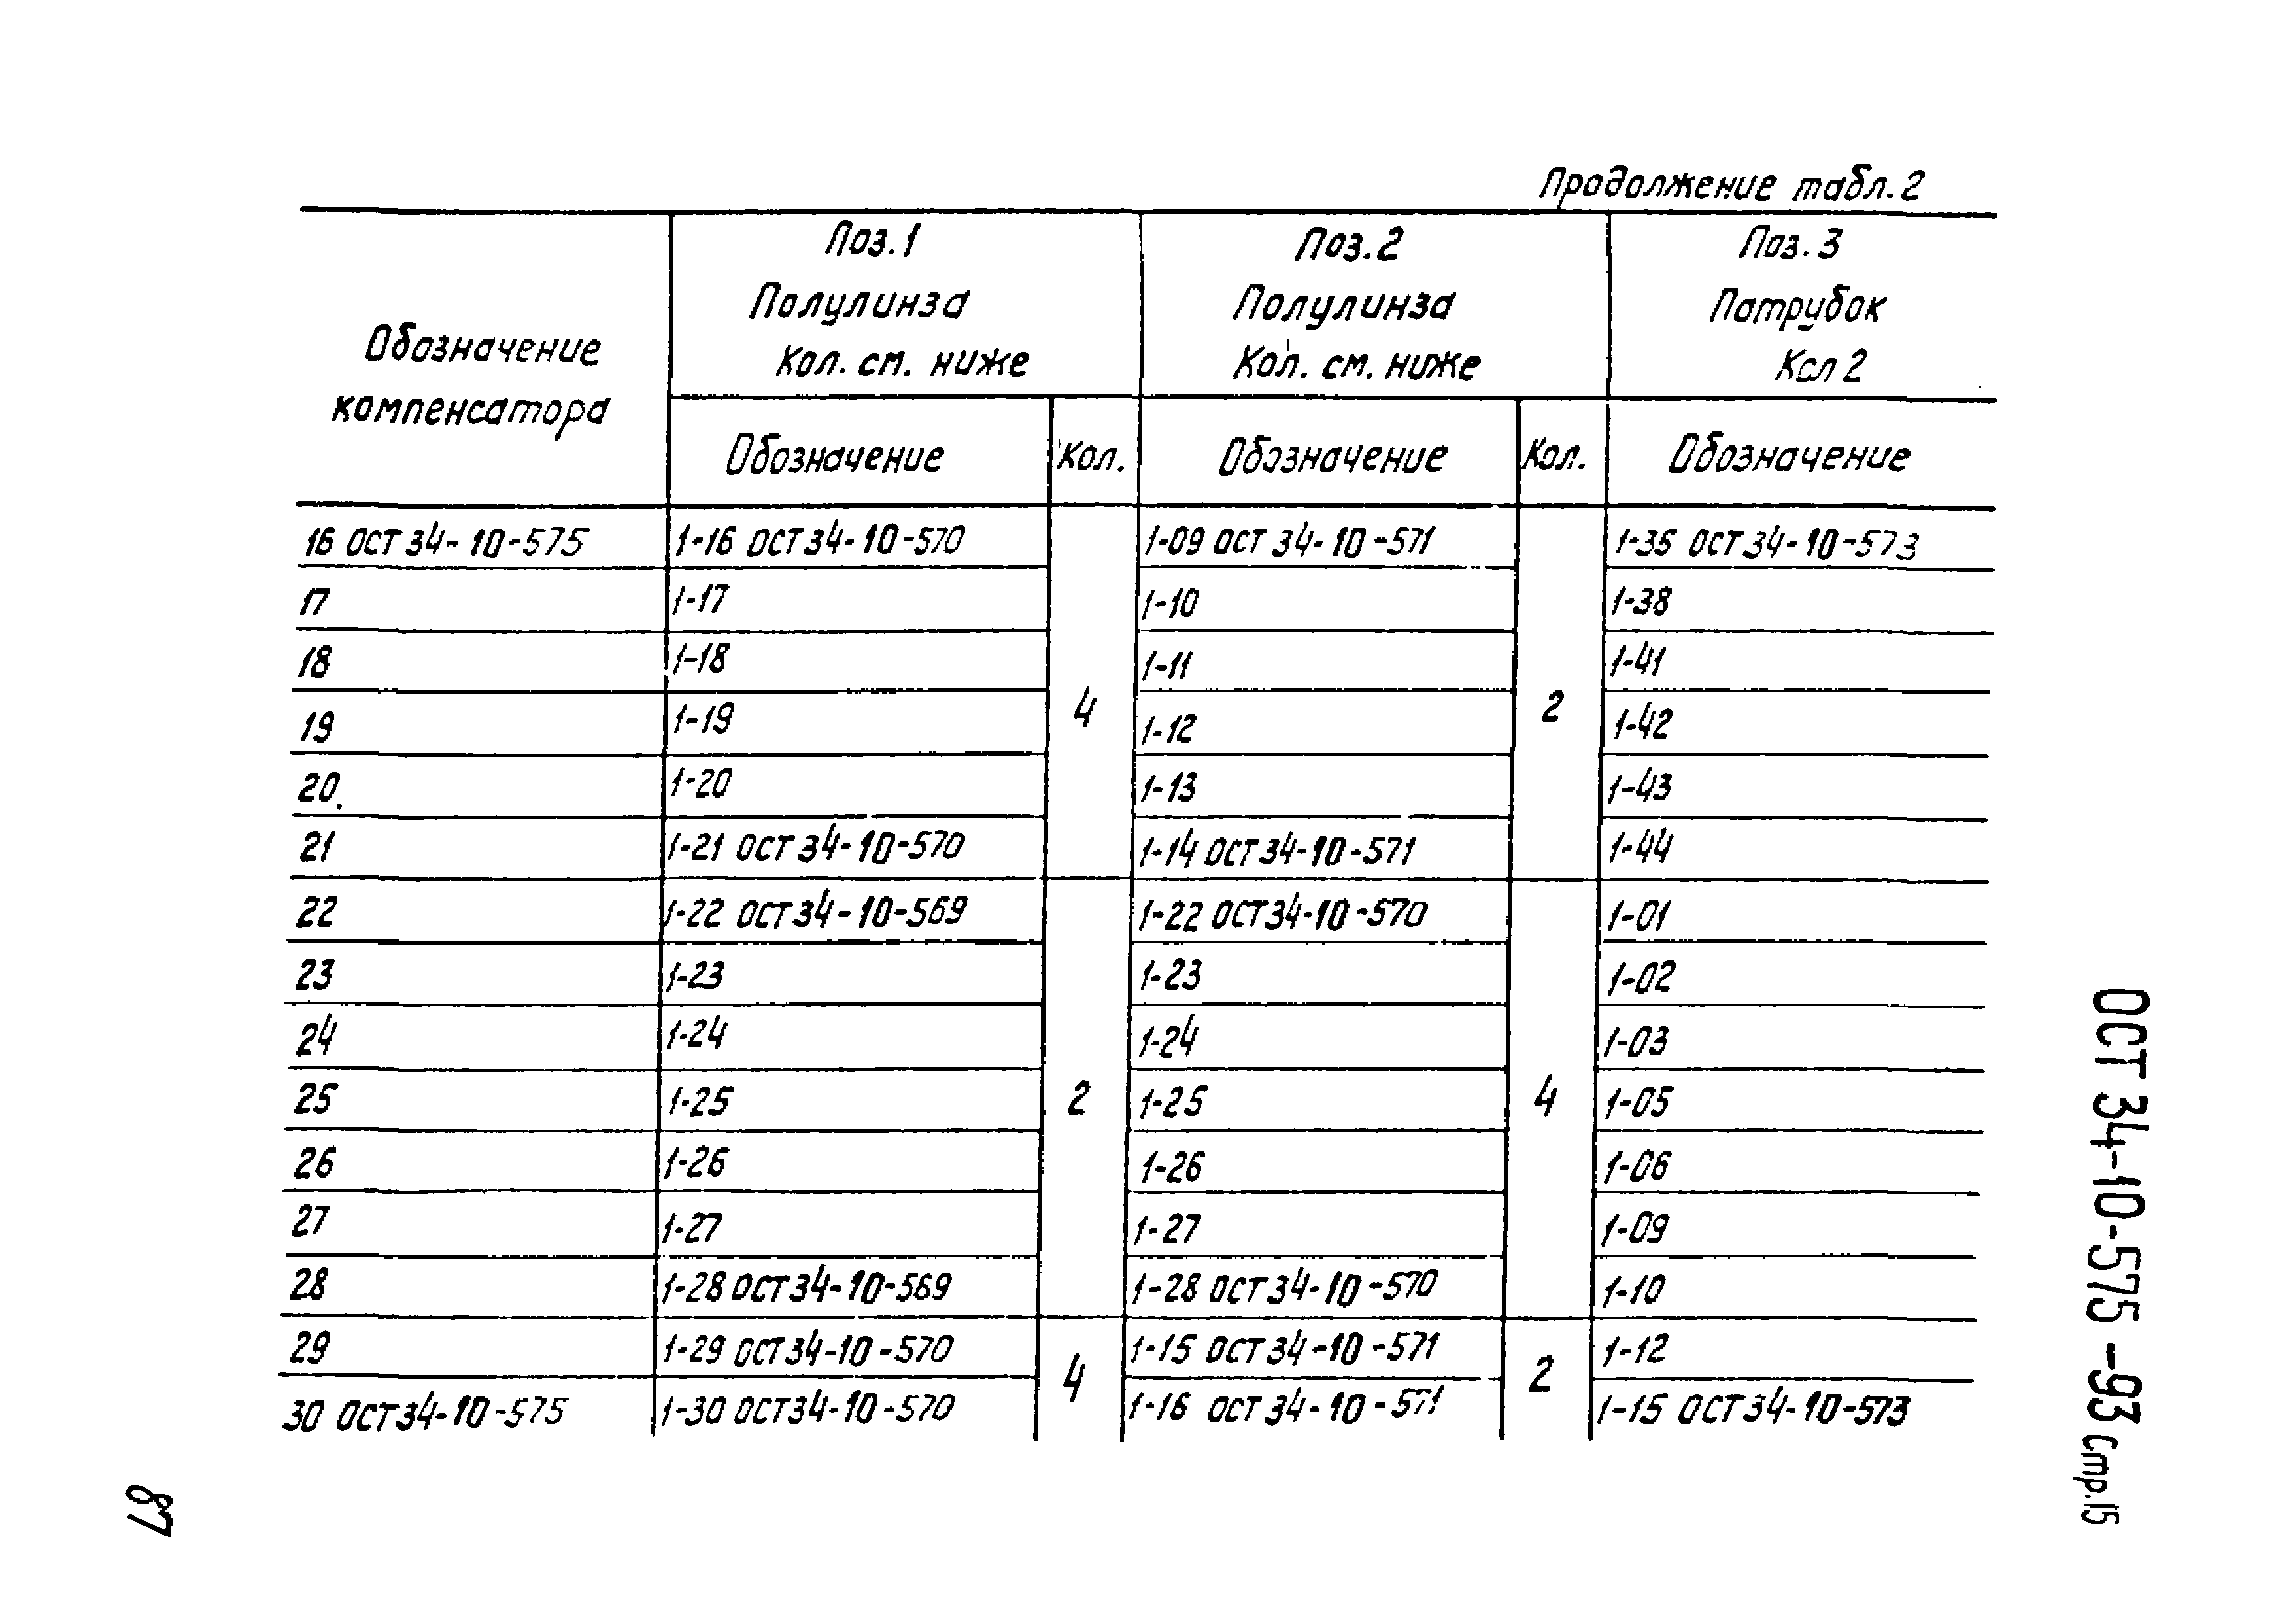 Продолжение табл. 2
Обозначение компенсатора | Поз. 1 Полулинза Кол. см. ниже | Поз. 2 Полулинза Кол. см. ниже | Поз. 3 Патрубок Кол 2
Обозначение | Кол. | Обозначение | Кол. | Обозначение
16 ОСТ 34-10-575 | 1-16 ОСТ 34-10-570 | 4 | 1-09 ОСТ 34-10-571 | 2 | 1-35 ОСТ 34-10-573
17 | 1-17 | 1-10 | 1-38
18 | 1-18 | 1-11 | 1-41
19 | 1-19 | 1-12 | 1-42
20. | 1-20 | 1-13 | 1-43
21 | 1-21 ОСТ 34-10-570 | 1-14 ОСТ 34-10-571 | 1-44
22 | 1-22 ОСТ 34-10-569 | 2 | 1-22 ОСТ 34-10-570 | 4 | 1-01
23 | 1-23 | 1-23 | 1-02
24 | 1-24 | 1-24 | 1-03
25 | 1-25 | 1-25 | 1-05
26 | 1-26 | 1-26 | 1-06
27 | 1-27 | 1-27 | 1-09
28 | 1-28 ОСТ 34-10-569 | 1-28 ОСТ 34-10-570 | 1-10
29 | 1-29 ОСТ 34-10-570 | 4 | 1-15 ОСТ 34-10-571 | 2 | 1-12
30 ОСТ 34-10-575 | 1-30 ОСТ 34-10-570 | 1-16 ОСТ 34-10-571 | 1-15 ОСТ 34-10-573
ОСТ 34-10-575-93 Стр. 15
87